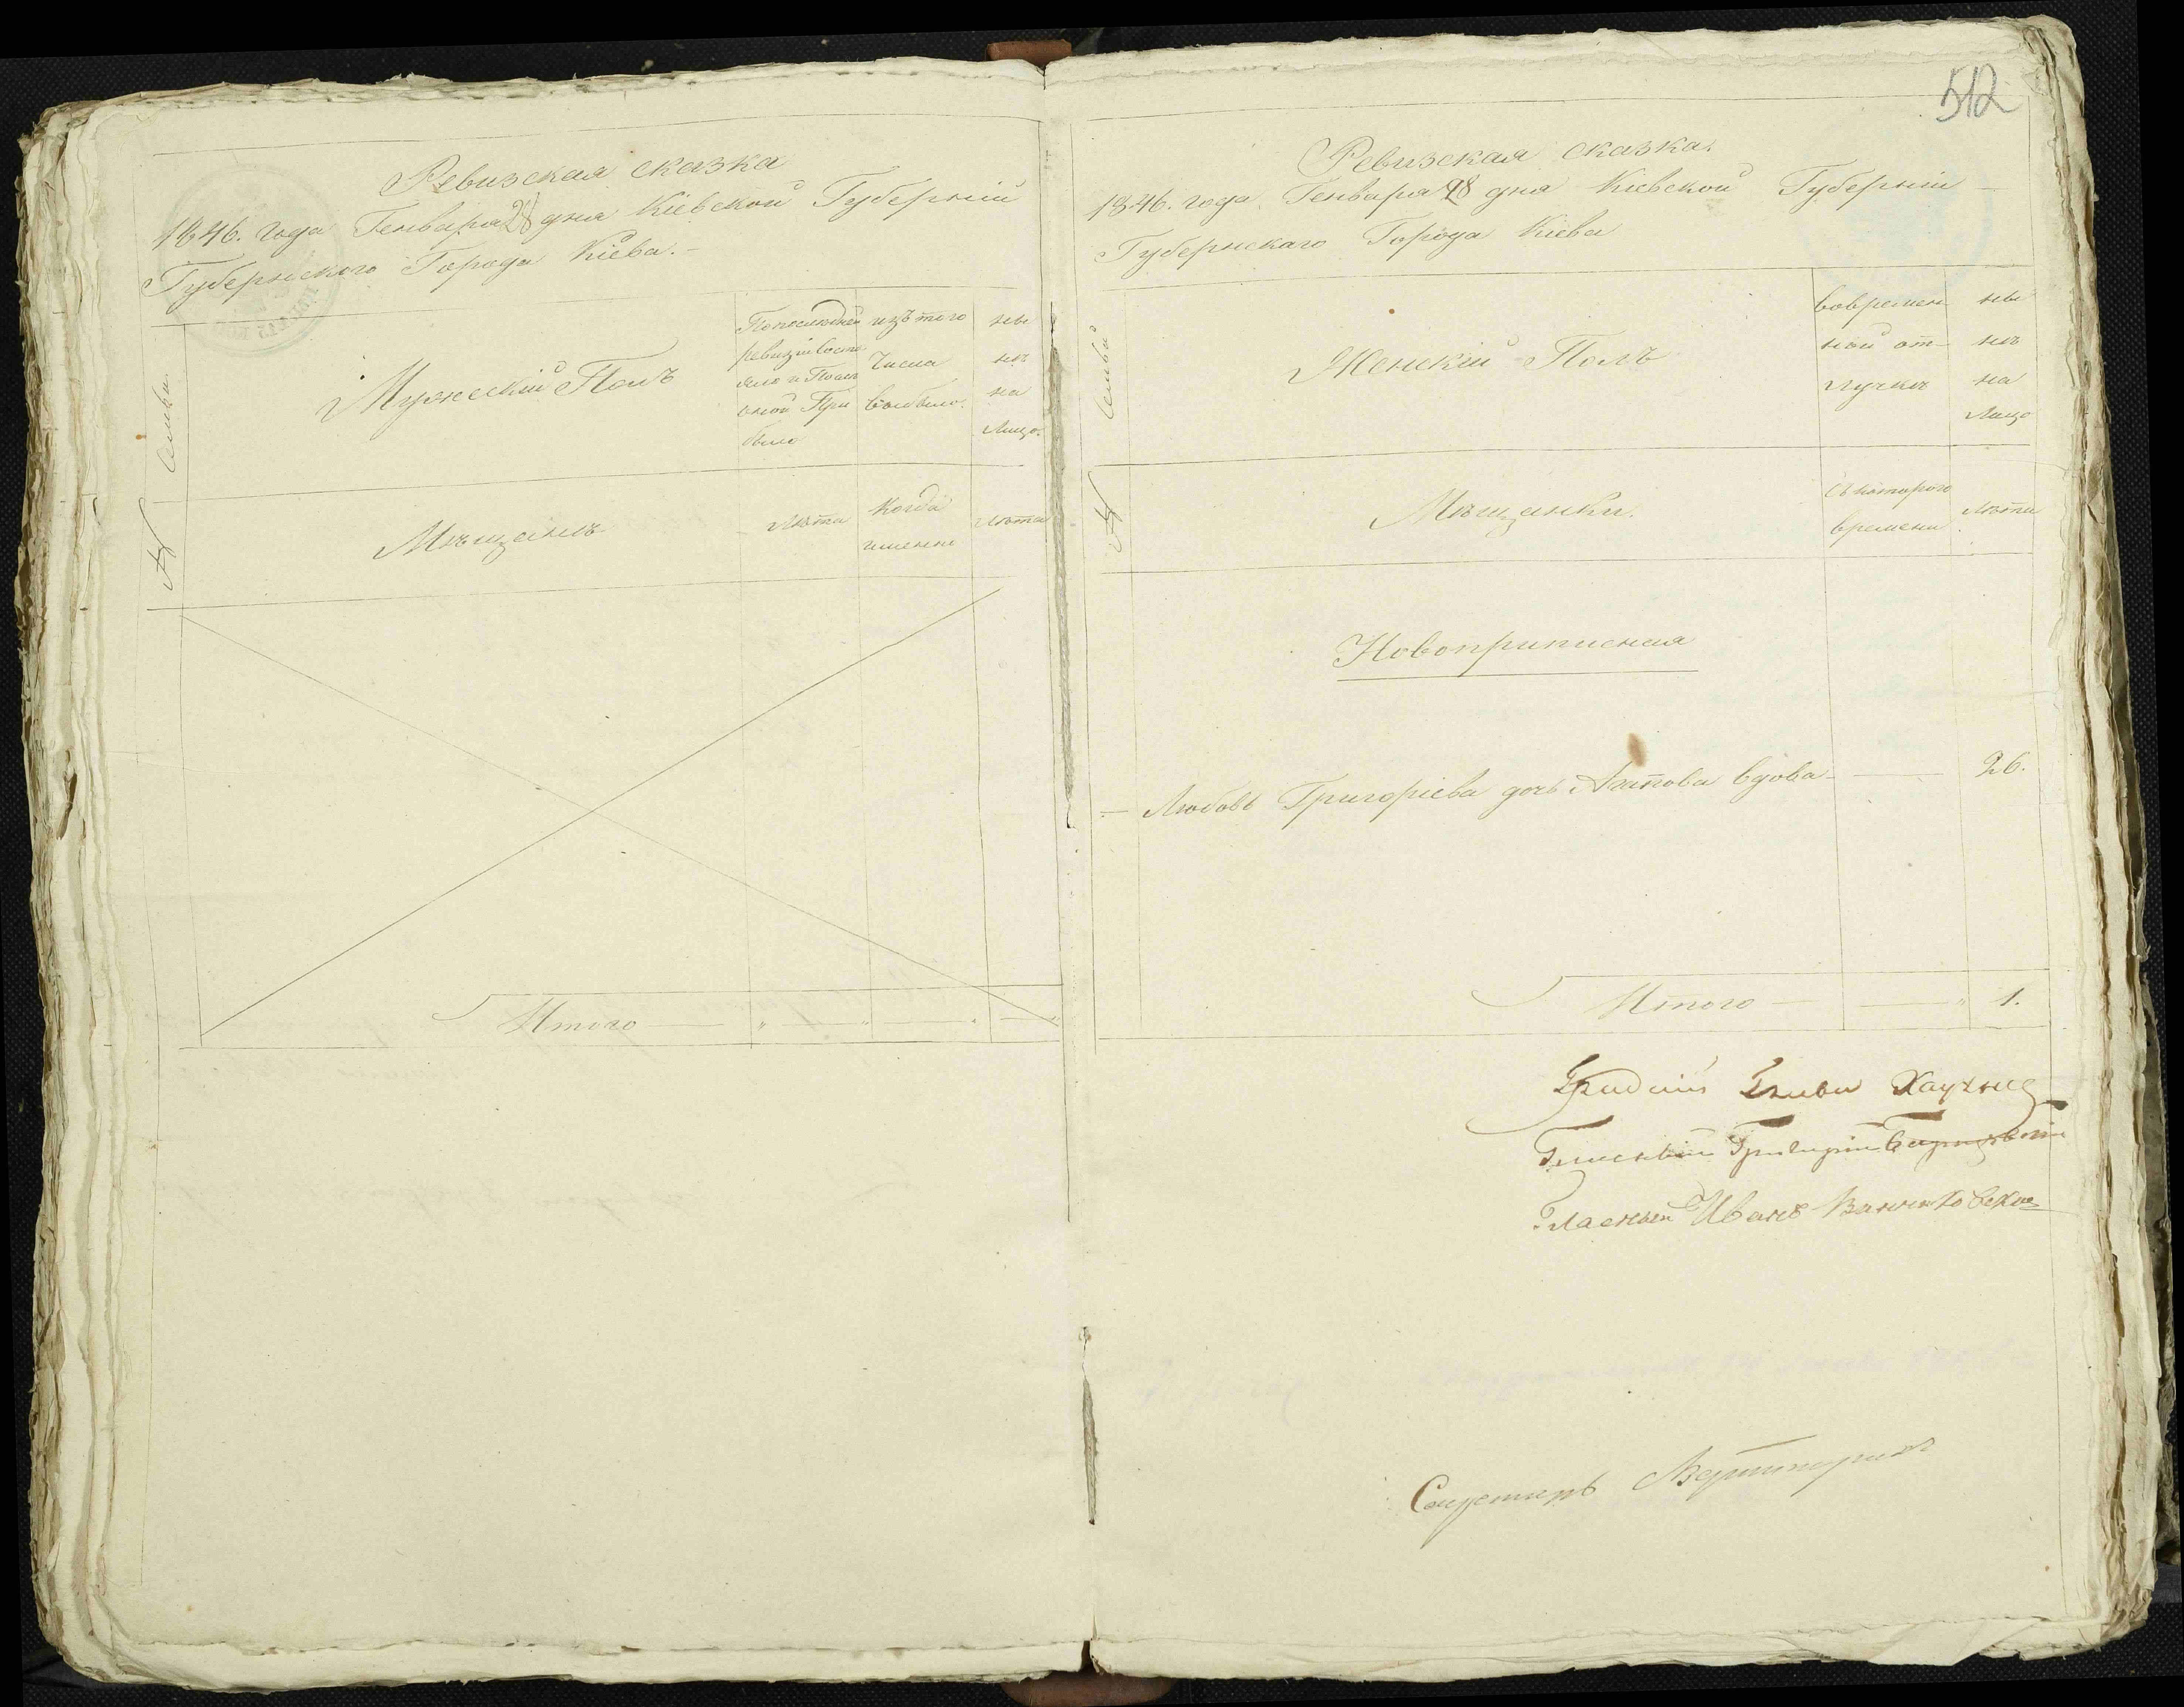 Ревизская сказка
1846. года Генваря 28 дня Кіевской Губерніи
Губернского Города Кіева.-
№ Семьи
Мужескій Полъ
По последней
ревизіи состо
яло и После
оной При
было
изъ того
Числа
выбыло.
ны
нѣ
на
Лицо.
Мѣщанъ
Лѣта
Когда
именно
Лѣта
Итого
512
Ревизская сказка.
1846. года Генваря 28 дня Кіевской Губерніи
Губернскаго Города Кіева
№ Семьи
Женскій Полъ
вовремен
ной от-
лучкѣ
ны
нѣ
на
Лицо
Мѣщанки.
съ котораго
времени
Лѣта
Новоприписная
Любовь Григоріева дочь вдова 26.
Итого 1.
Гласный Григорій
Гласный Иванъ
Секретарь